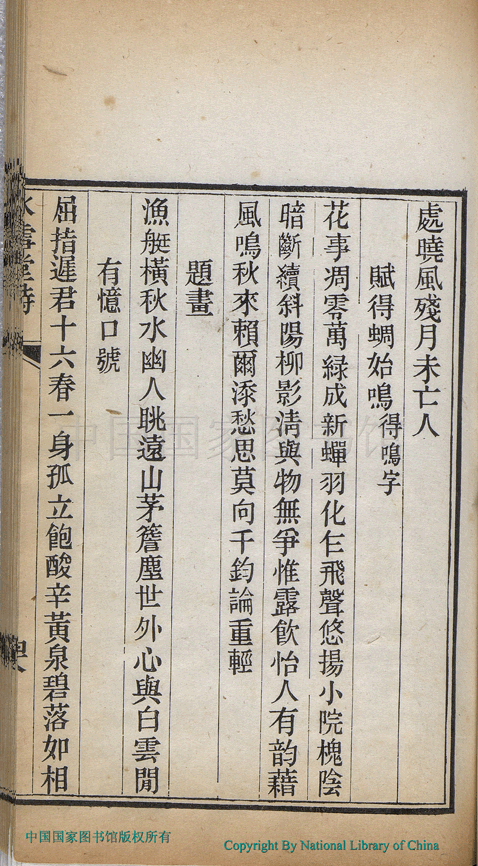 處曉風殘月未亡人
賦得蜩始鳴得鳴字
花事凋零萬綠成新蟬羽化乍飛聲悠揚小院槐陰
暗斷續斜陽柳影淸與物無爭惟露飮怡人有韵藉
風鳴秋來賴爾添愁思莫向千鈞論重輕
題畫
漁艇橫秋水幽人眺遠山茅簷塵世外心與白雲閒
有憶口號
屈指遲君十六春一身孤立飽酸辛黃泉碧落如相
中国国家图书馆
中国国家图书馆版权所有
Copyright By National Library of China